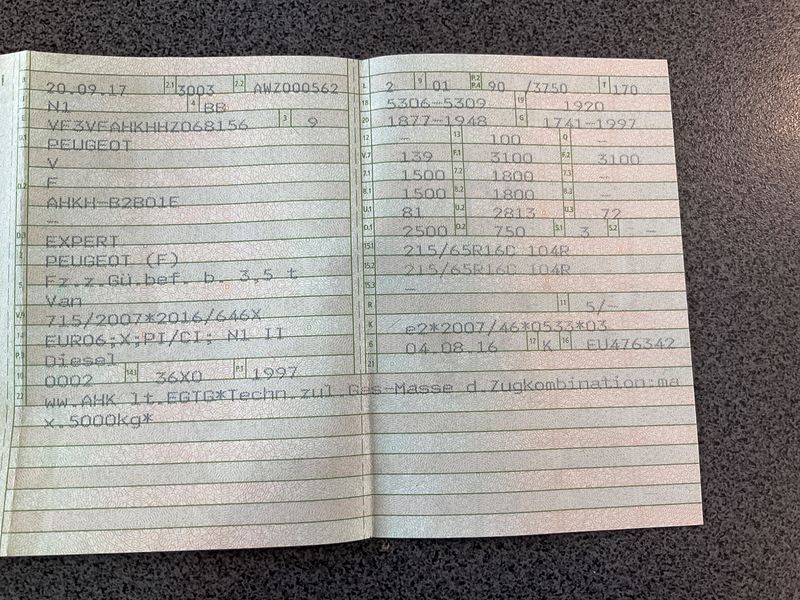 20.09.17 2.1 3003 2.2 AWZ000562
N1 4 BB
VF3VFAHKHHZ068156 3 9
PEUGEOT
V
F
AHKH-B2B01E
-
EXPERT
PEUGEOT (F)
Fz.z.Gü.bef. b. 3,5 t
Van
715/2007*2016/646X
EURO6;X;PI/CI; N1 II
Diesel
0002 14.1 36X0 P.1 1997
22 ww.AHK lt.EGTG*Techn.zul.Ges-Masse d.Zugkombination:ma
x.5000kg*
L 2 9 01 P.2 P.4 90 /3750 T 170
18 5306-5309 19 1920
20 1877-1948 G 1741-1997
12 - 13 100 Q -
V.7 139 F.1 3100 F.2 3100
7.1 1500 7.2 1800 7.3 -
8.1 1500 8.2 1800 8.3 -
U.1 81 U.2 2813 U.3 72
O.1 2500 O.2 750 S.1 3 S.2 -
15.1 215/65R16C 104R
15.2 215/65R16C 104R
15.3 -
R 11 5/-
K e2*2007/46*0533*03
6 04.08.16 17 K 16 EU476342
21